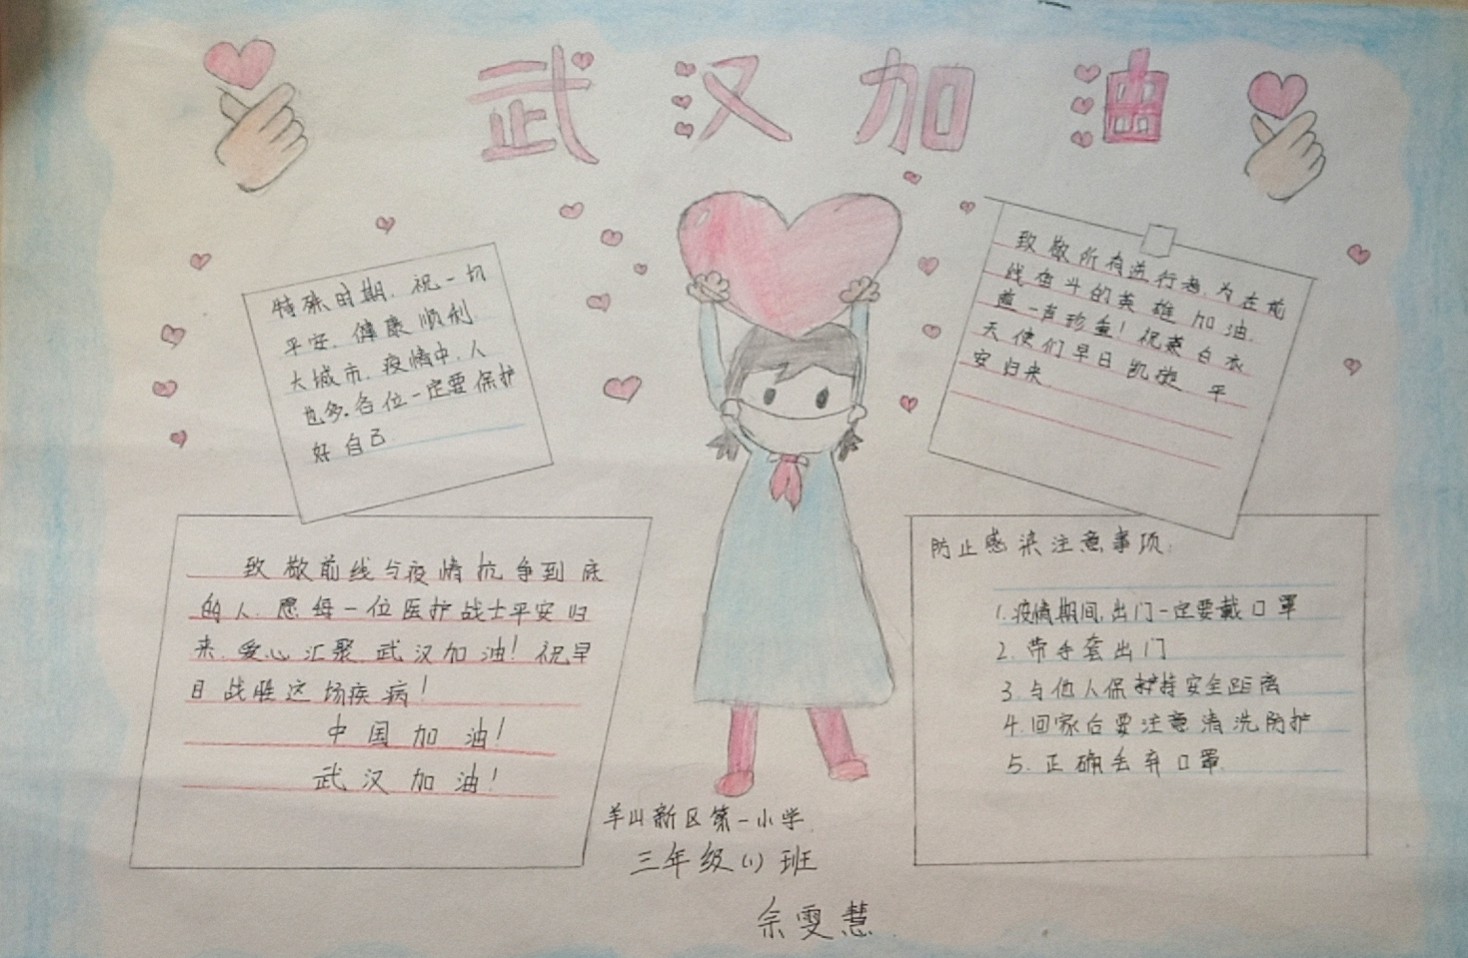 武汉加油
特殊时期.祝一切
平安.健康顺利
大城市.疫情中.人
也多.各位一定要保护
好自己
致敬所有逆行者为在前
线奋斗的英雄加油.
道一声珍重!祝愿白衣
天使们早日凯旋 平
安归来
致敬前线与疫情抗争到底
的人.愿每一位医护战士平安归
来.爱心汇聚.武汉加油!祝早
日战胜这场疾病!
中国加油!
武汉加油!
防止感染注意事项:
1.疫情期间,出门一定要戴口罩
2.带手套出门
3.与他人保护持安全距离
4.回家后要注意清洗防护
5.正确丢弃口罩.
羊山新区第一小学
三年级(1)班
余雯慧